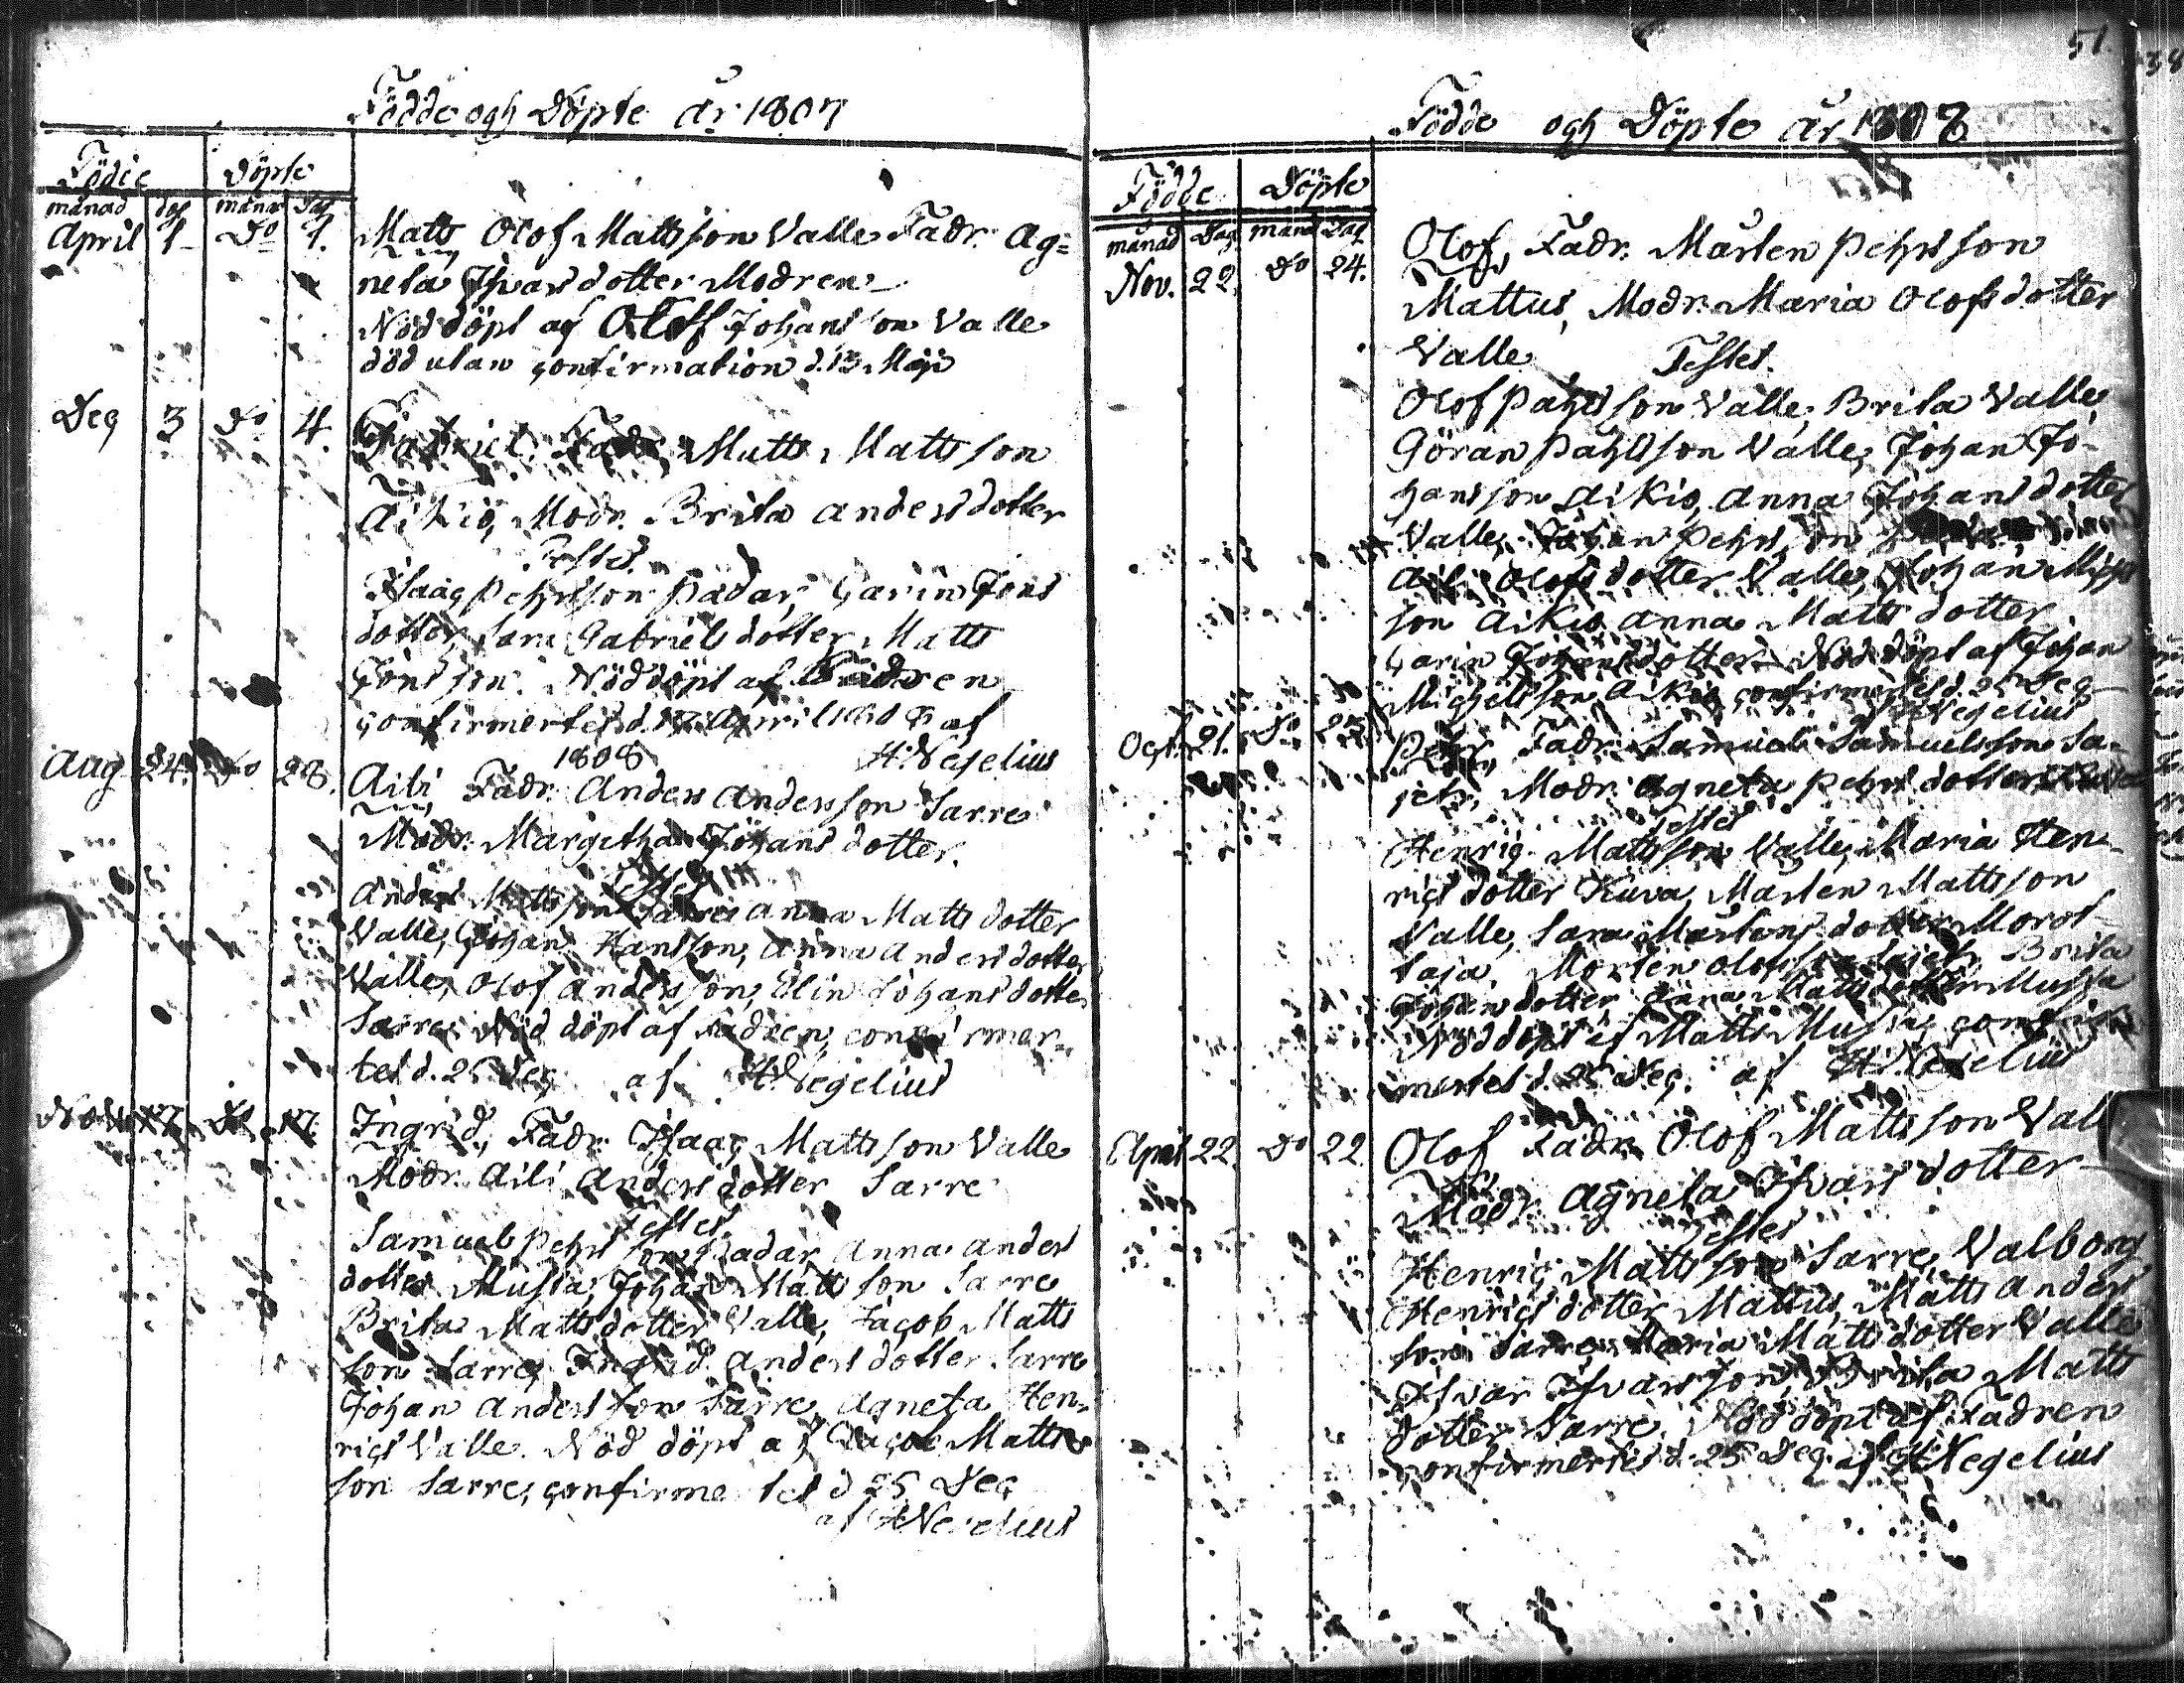 Födde och Döpte år 1807
Födde Döpte
månad dag månad dag
April 1 Do 1. Matts Olof Mattsson Valle Fadr. Ag=
neta Ifvarsdotter Modren
Nöddöpt af Olof Johansson Valle
död utan confirmation d. 13 Maji
Dec 3 Do 4. Gabriel Fadr. Matts Mattsson
Aikio, Modr. Brita Andersdotter
Testes.
Isaac Pehrsson Padar, Carin Jons
dotter, Sara Gabrielsdotter, Matts
Jonsson. Nöddöpt af Fadren
confirmertes d. April 1808 af
H. Wegelius
1808
Aug 24. Do 28. Aili Fadr. Anders Andersson Sarre
Modr. Margetha Johansdotter.
Testes
Anders Mattsson Sarre Anna Mattsdotter
Valle, Johan Hansson, Anna Andersdotter
Valle, Olof Andersson, Elin Johansdotter
Sarre. Nöd döpt af Fadren, confirmer=
tes d. 25 Dec af H. Wegelius
17. Ingrid, Fadr. Isaac Mattsson Valle
Modr. Aili Andersdotter Sarre
Testes.
Samuel Pehrsson Padar, Anna Anders
dotter Musta, Johan Mattsson Sarre
Brita Mattsdotter Valle, Jacob Matts
son Sarre, Ingrid Andersdotter Sarre
Johan Andersson Sarre, Agneta Hen=
rics Valle. Nöd döpt af Jacob Matts
son Sarre, confirmertes d 25 Dec
af H Wegelius
51.
Födde och Döpte år 1808
Födde Döpte
månad Dag månad Dag
Nov. 22. Do 24. Olof, Fadr. Mårten Pehrsson
Mattus, Modr. Maria Olofsdotter
Valle Testes.
Olof Påhlsson Valle, Brita Valle,
Göran Påhlsson Valle, Johan Jo-
hansson Aikio, Anna Johansdotter
Valle, Johan Pehrsson
Aili Olofsdotter Valle, Johan Michels
son Aikio Anna Mattsdotter
Carin Johansdotter Nöddöpt af Johan
Michelsson Aikio confirmertes d. 25 Dec
Wegelius
Oct. 21. Do Pehr, Fadr. Samuel Samuelsson Sa-
jets, Modr. Agneta Pehrsdotter
Testes
Henric Mattsson Valle, Maria Hen-
rics dotter Kuva, Mårten Mattsson
Valle, Sara Mårtensdotter Morot-
taja, Morten Olofsson Sajets Brita
Johansdotter, Anna Mattsdotter Musta
Nöddöpt af Matts Musta, confir
mertes d. 25 Dec. af H. Wegelius
April 22. Do 22. Olof Fadr. Olof Mattsson Valle
Modr. Agneta Ifvarsdotter
Testes
Henric Mattsson Sarre, Valborg
Henrics dotter Mattus, Matts Anders
son Sarre Maria Mattsdotter Valle
Ifvar Ifvarsson, Brita Matts
dotter Sarre. Nöd döpt af Fadren
confirmertes d. 25 Dec. af H Wegelius